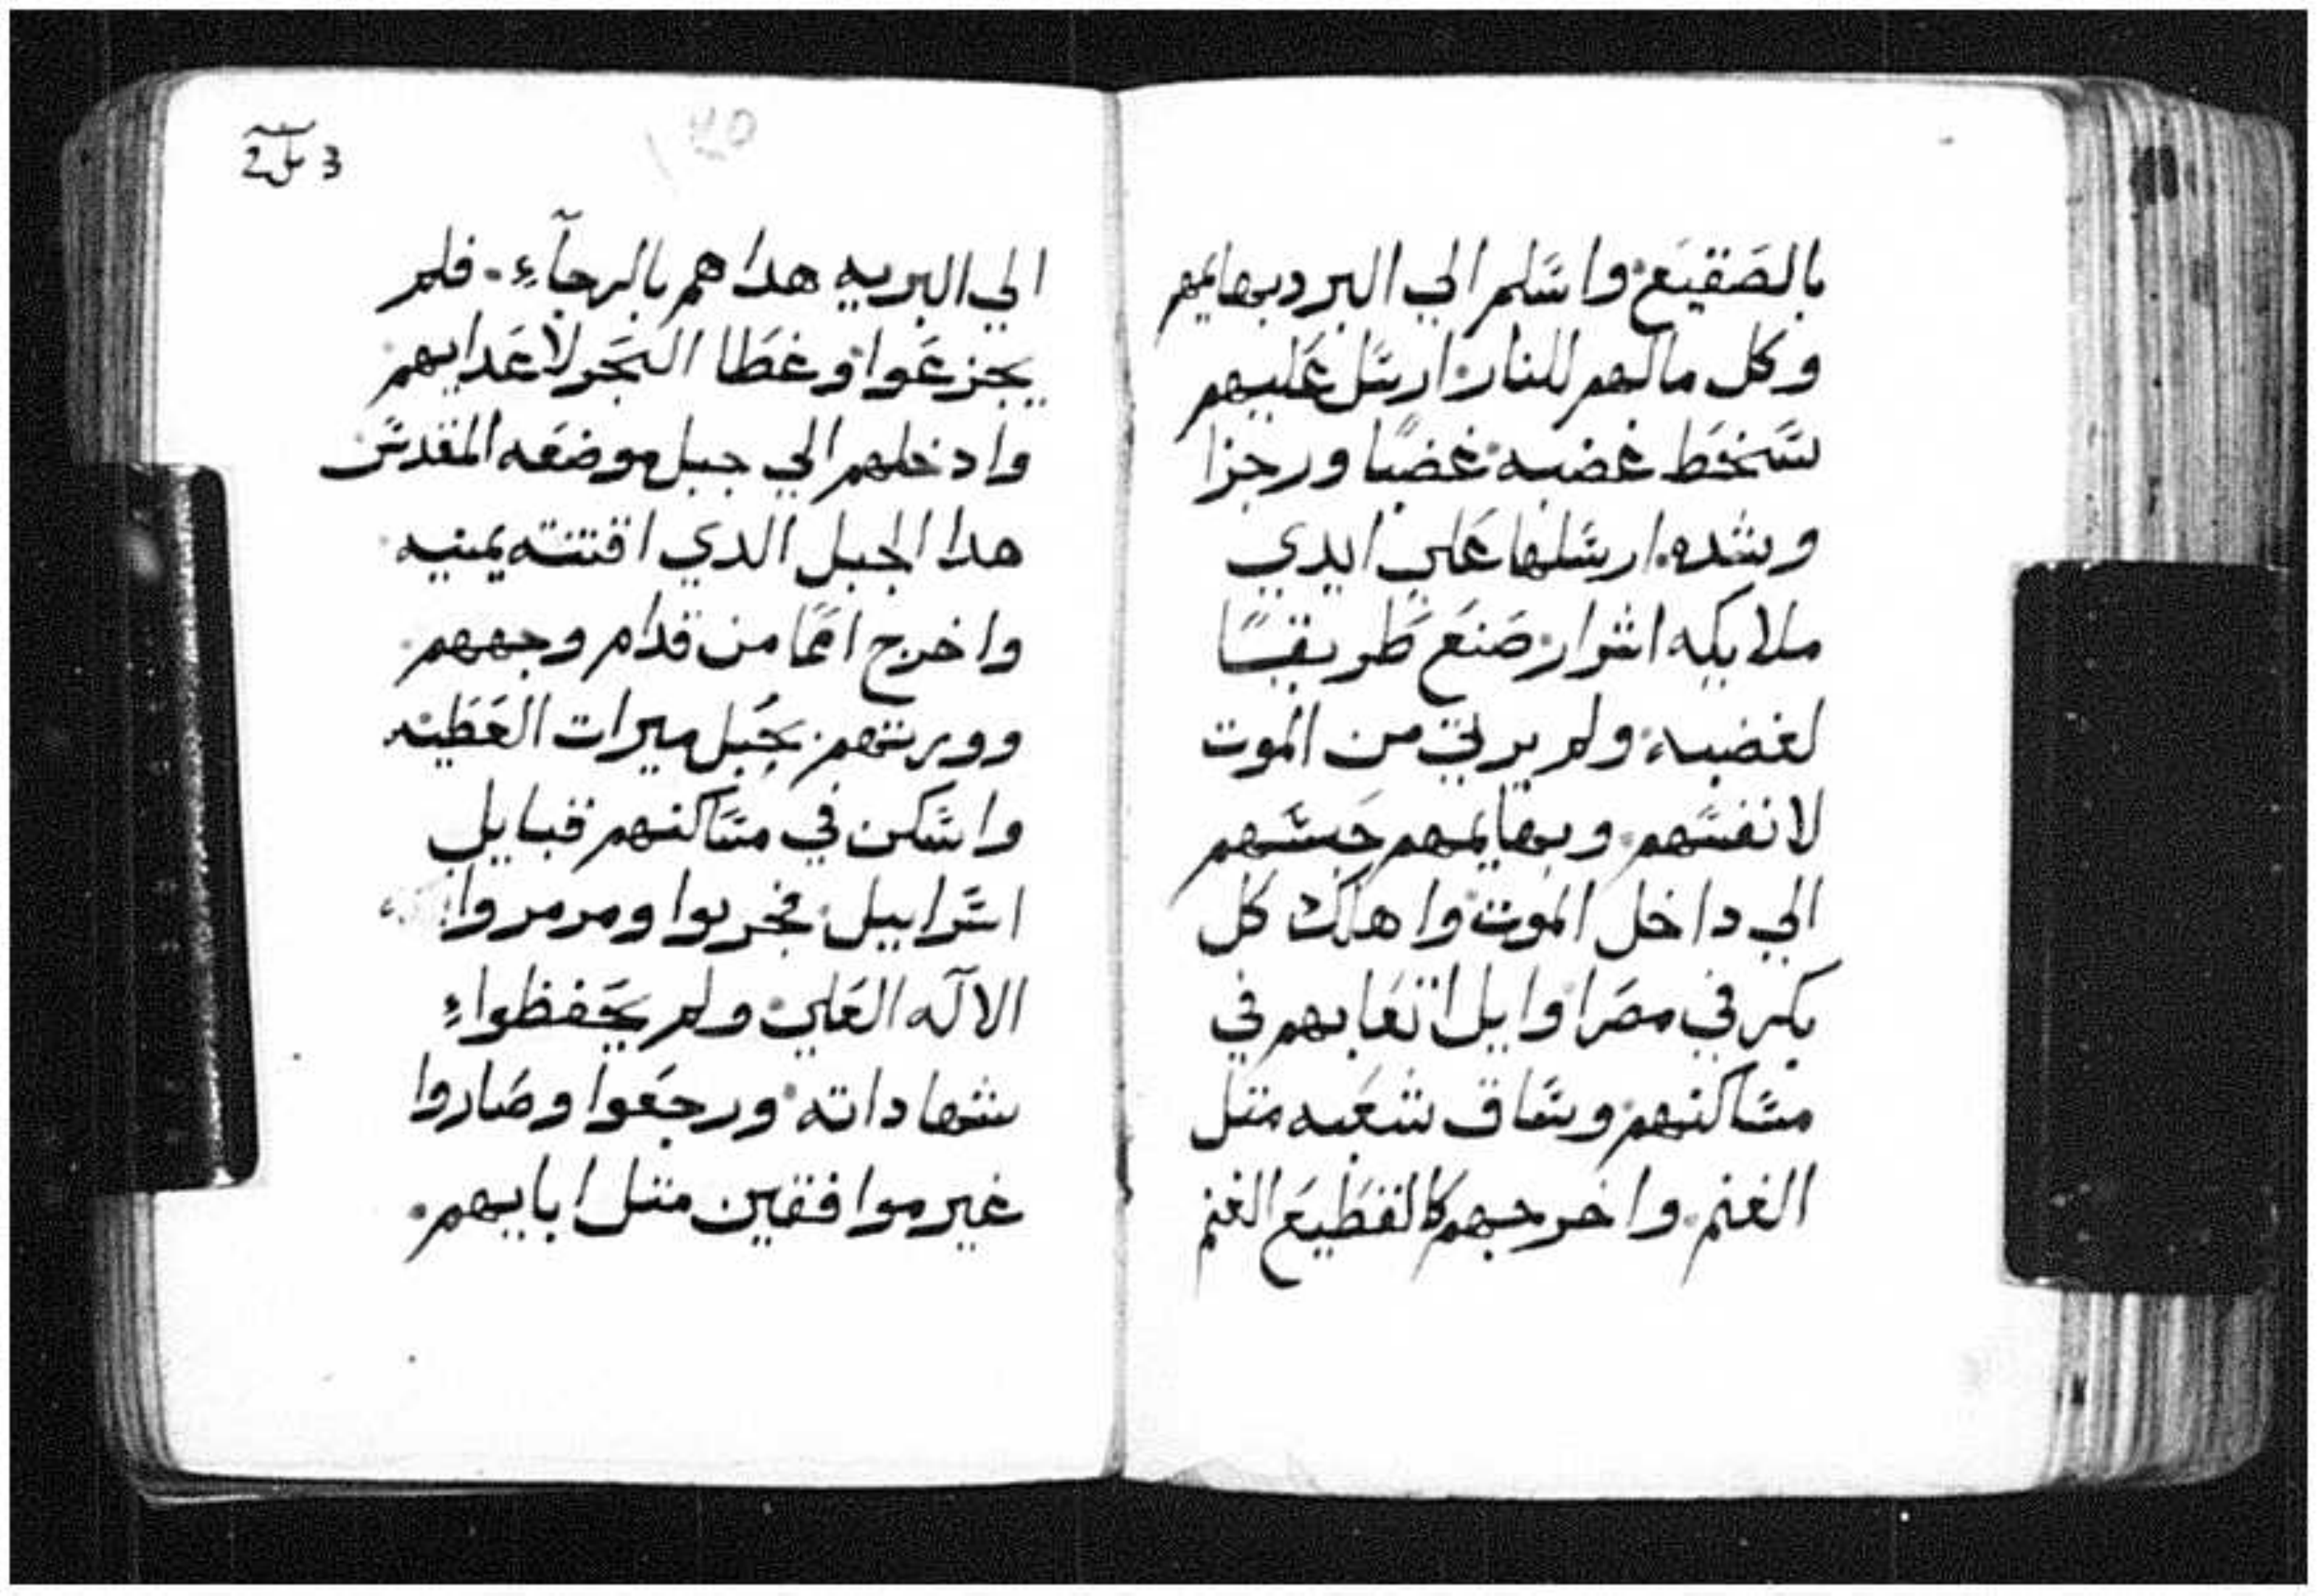 بالصَقيَع. واسَّلم الي البرد بهايمهم
وكل مالهم للنار. ارسَّل عَليهم
سَّخطَ غضبه. غضبًا ورجزا
وشده. ارسَّلها عَلي ايدي
ملايكه اشرار. صَنعَ طَريقًا
لغضبه. ولم يرتي من الموت
لانفسَّهم. وبهايمهم حَبسَّهم
الي داخل الموت. واهلك كل
بكر في مصَر. اوايل اتعَابهم في
مسَّاكنهم. وسَّاق شعَبه متل
الغنم. واخرجهم كالقطَيعَ الغنم
الي البريه هداهم بالرجآءِ. فلم
يجزعَوا. وغطَا البَحر لاعَدايهم
وادخلهم الي جبل موضعَه المقدسَّ
هدا الجبل الدي اقتنته يمينه
واخرج اممًا من قدام وجههم
وورتهم. بحَبل ميرات العَطَيه
واسَّكن في مسَّاكنهم قبايل
اسَّراييل. فجربوا ومرمروا
الالَه العَلي. ولم يحَفظواءِ
شهاداته. ورجعَوا وصَاروا
غير موافقين متل ابايهم.